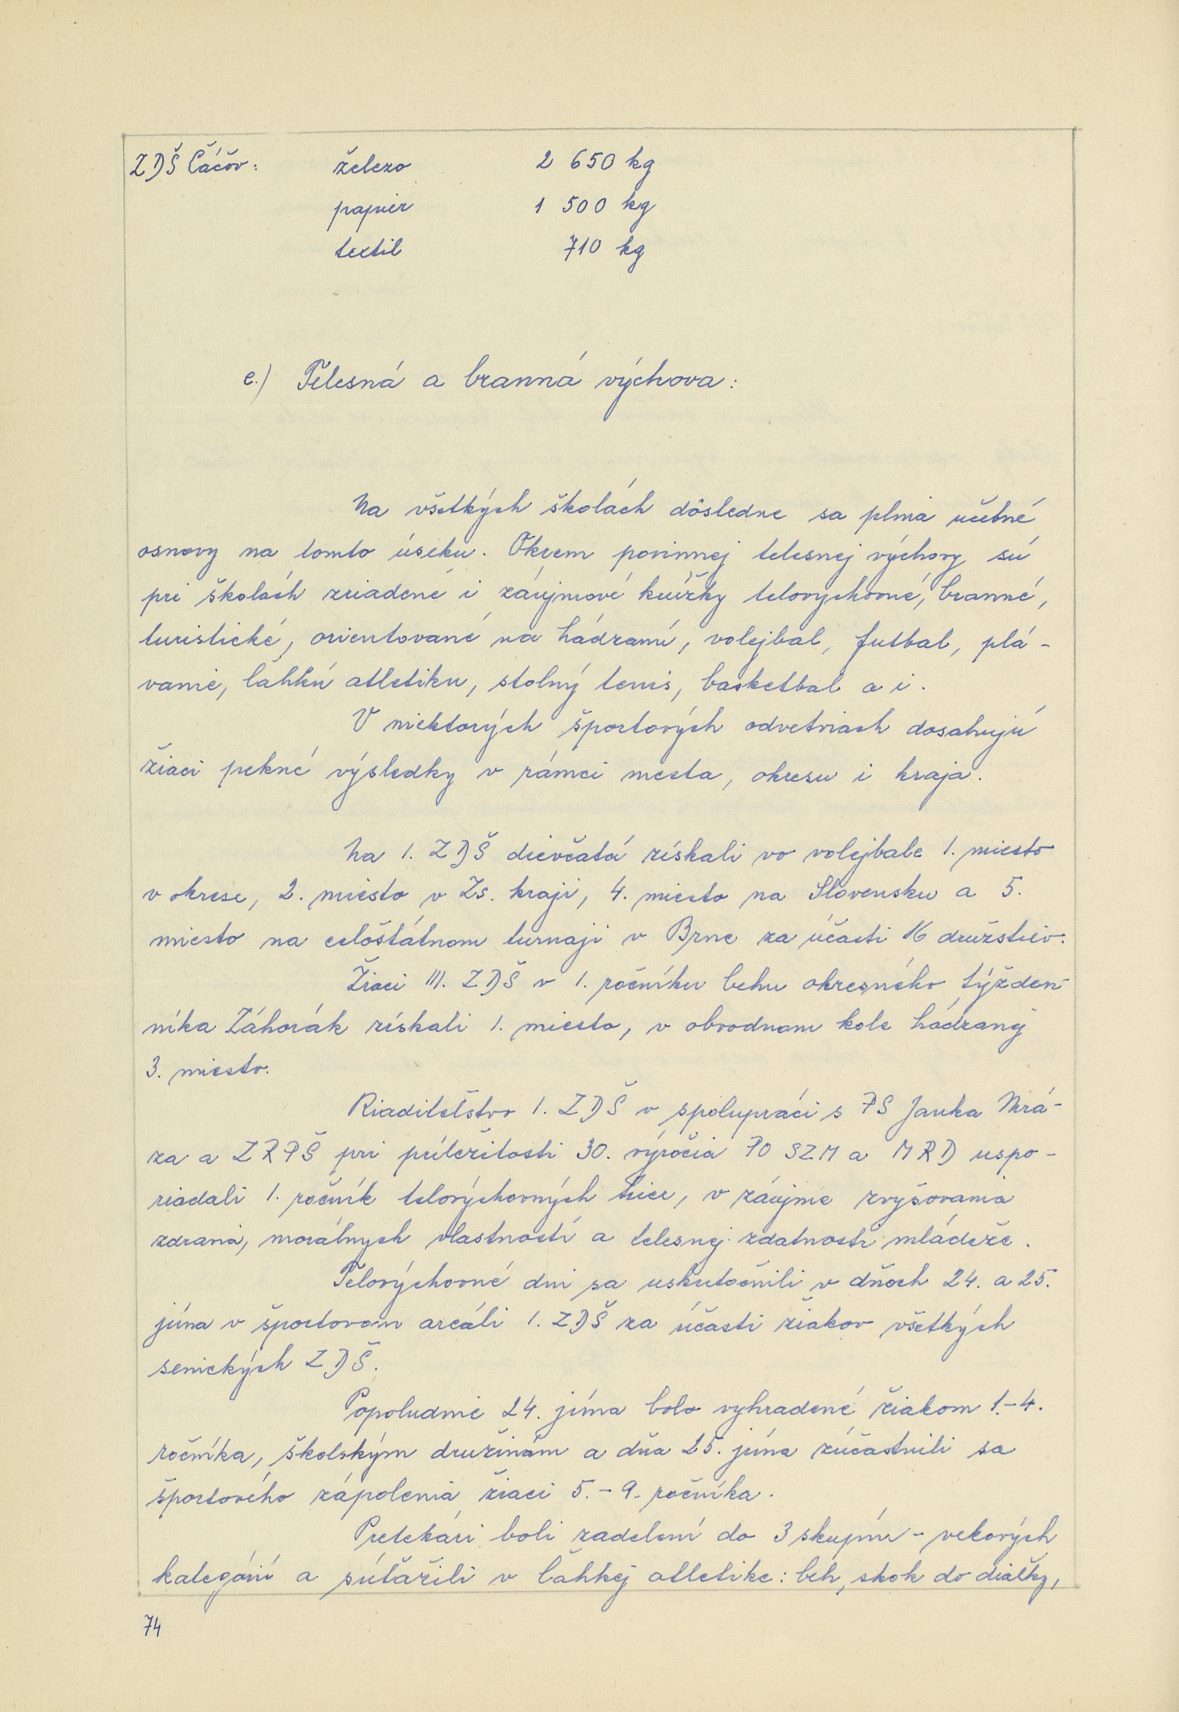 ZDŠ Čáčov: železo 2 650 kg
papier 1 500 kg
textil 710 kg
e.) Telesná a branná výchova:
Na všetkých školách dôsledne sa plnia učebné
osnovy na tomto úseku. Okrem povinnej telesnej výchovy sú
pri školách zriadené i záujmové krúžky telovýchovné, branné,
turistické, orientované na hádzanú, volejbal, futbal, plá-
vanie, ľahkú atletiku, stolný tenis, basketbal a i.
V niektorých športových odvetviach dosahujú
žiaci pekné výsledky v rámci mesta, okresu i kraja.
Na 1. ZDŠ dievčatá získali vo volejbale 1. miesto
v okrese, 2. miesto v Zs. kraji, 4. miesto na Slovensku a 5.
miesto na celoštátnom turnaji v Brne za účasti 16 družstiev.
Žiaci III. ZDŠ v 1. ročníku behu okresného týžden-
níka Záhorák získali 1. miesto, v obvodnom kole hádzanej
3. miesto.
Riaditeľstvo 1. ZDŠ v spolupráci s PS Janka Mrá-
za a ZRPŠ pri príležitosti 30. výročia PO SZM a MRD uspo-
riadali 1. ročník telovýchovných hier, v záujme zvyšovania
zdravia, morálnych vlastností a telesnej zdatnosti mládeže.
Telovýchovné dni sa uskutočnili v dňoch 24. a 25.
júna v športovom areáli 1. ZDŠ za účasti žiakov všetkých
senických ZDŠ.
Popoludnie 24. júna bolo vyhradené žiakom 1.-4.
ročníka, školským družinám a dňa 25. júna zúčastnili sa
športového zápolenia žiaci 5.-9. ročníka.
Pretekári boli zadelení do 3 skupín - vekových
kategórií a súťažili v ľahkej atletike: beh, skok do diaľky,
74